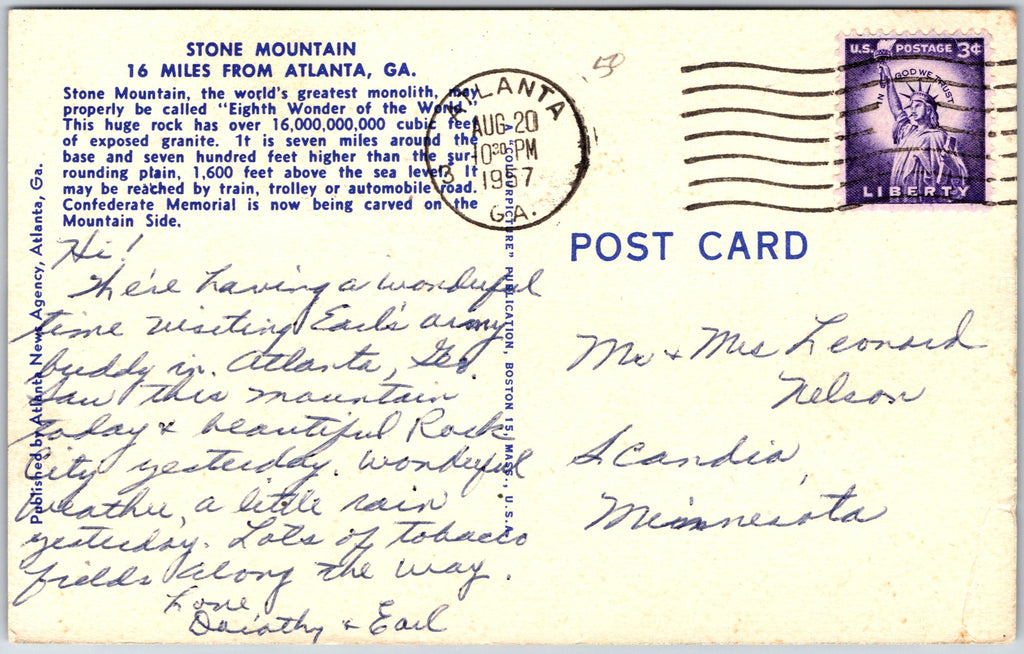 STONE MOUNTAIN
16 MILES FROM ATLANTA, GA.
Stone Mountain, the world's greatest monolith, may
properly be called "Eighth Wonder of the World.
This huge rock has over 16,000,000,000 cubic feet
of exposed granite. It is seven miles around the
base and seven hundred feet higher than the sur-
rounding plain, 1,600 feet above the sea level. It
may be reached by train, trolley or automobile road.
Confederate Memorial is now being carved on the
Mountain Side.
Published by Atlanta News Agency, Atlanta, Ga.
Hi!
There having a wonderful
time visiting Earl's army
buddy in Atlanta, Ga.
Saw this mountain
today & beautiful Rock
City yesterday. Wonderful
weather, a little rain
yesterday. Lots of tobacco
fields along the way.
Love
Dorothy & Earl
A "COLOURPICTURE" PUBLICATION, BOSTON 15, MASS., U.S.A.
ATLANTA
AUG 20
10 30 PM
1957
GA.
3
.50
U.S. POSTAGE 3¢
IN GOD WE TRUST
LIBERTY
POST CARD
Mr & Mrs Leonard
Nelson
Scandia,
Minnesota